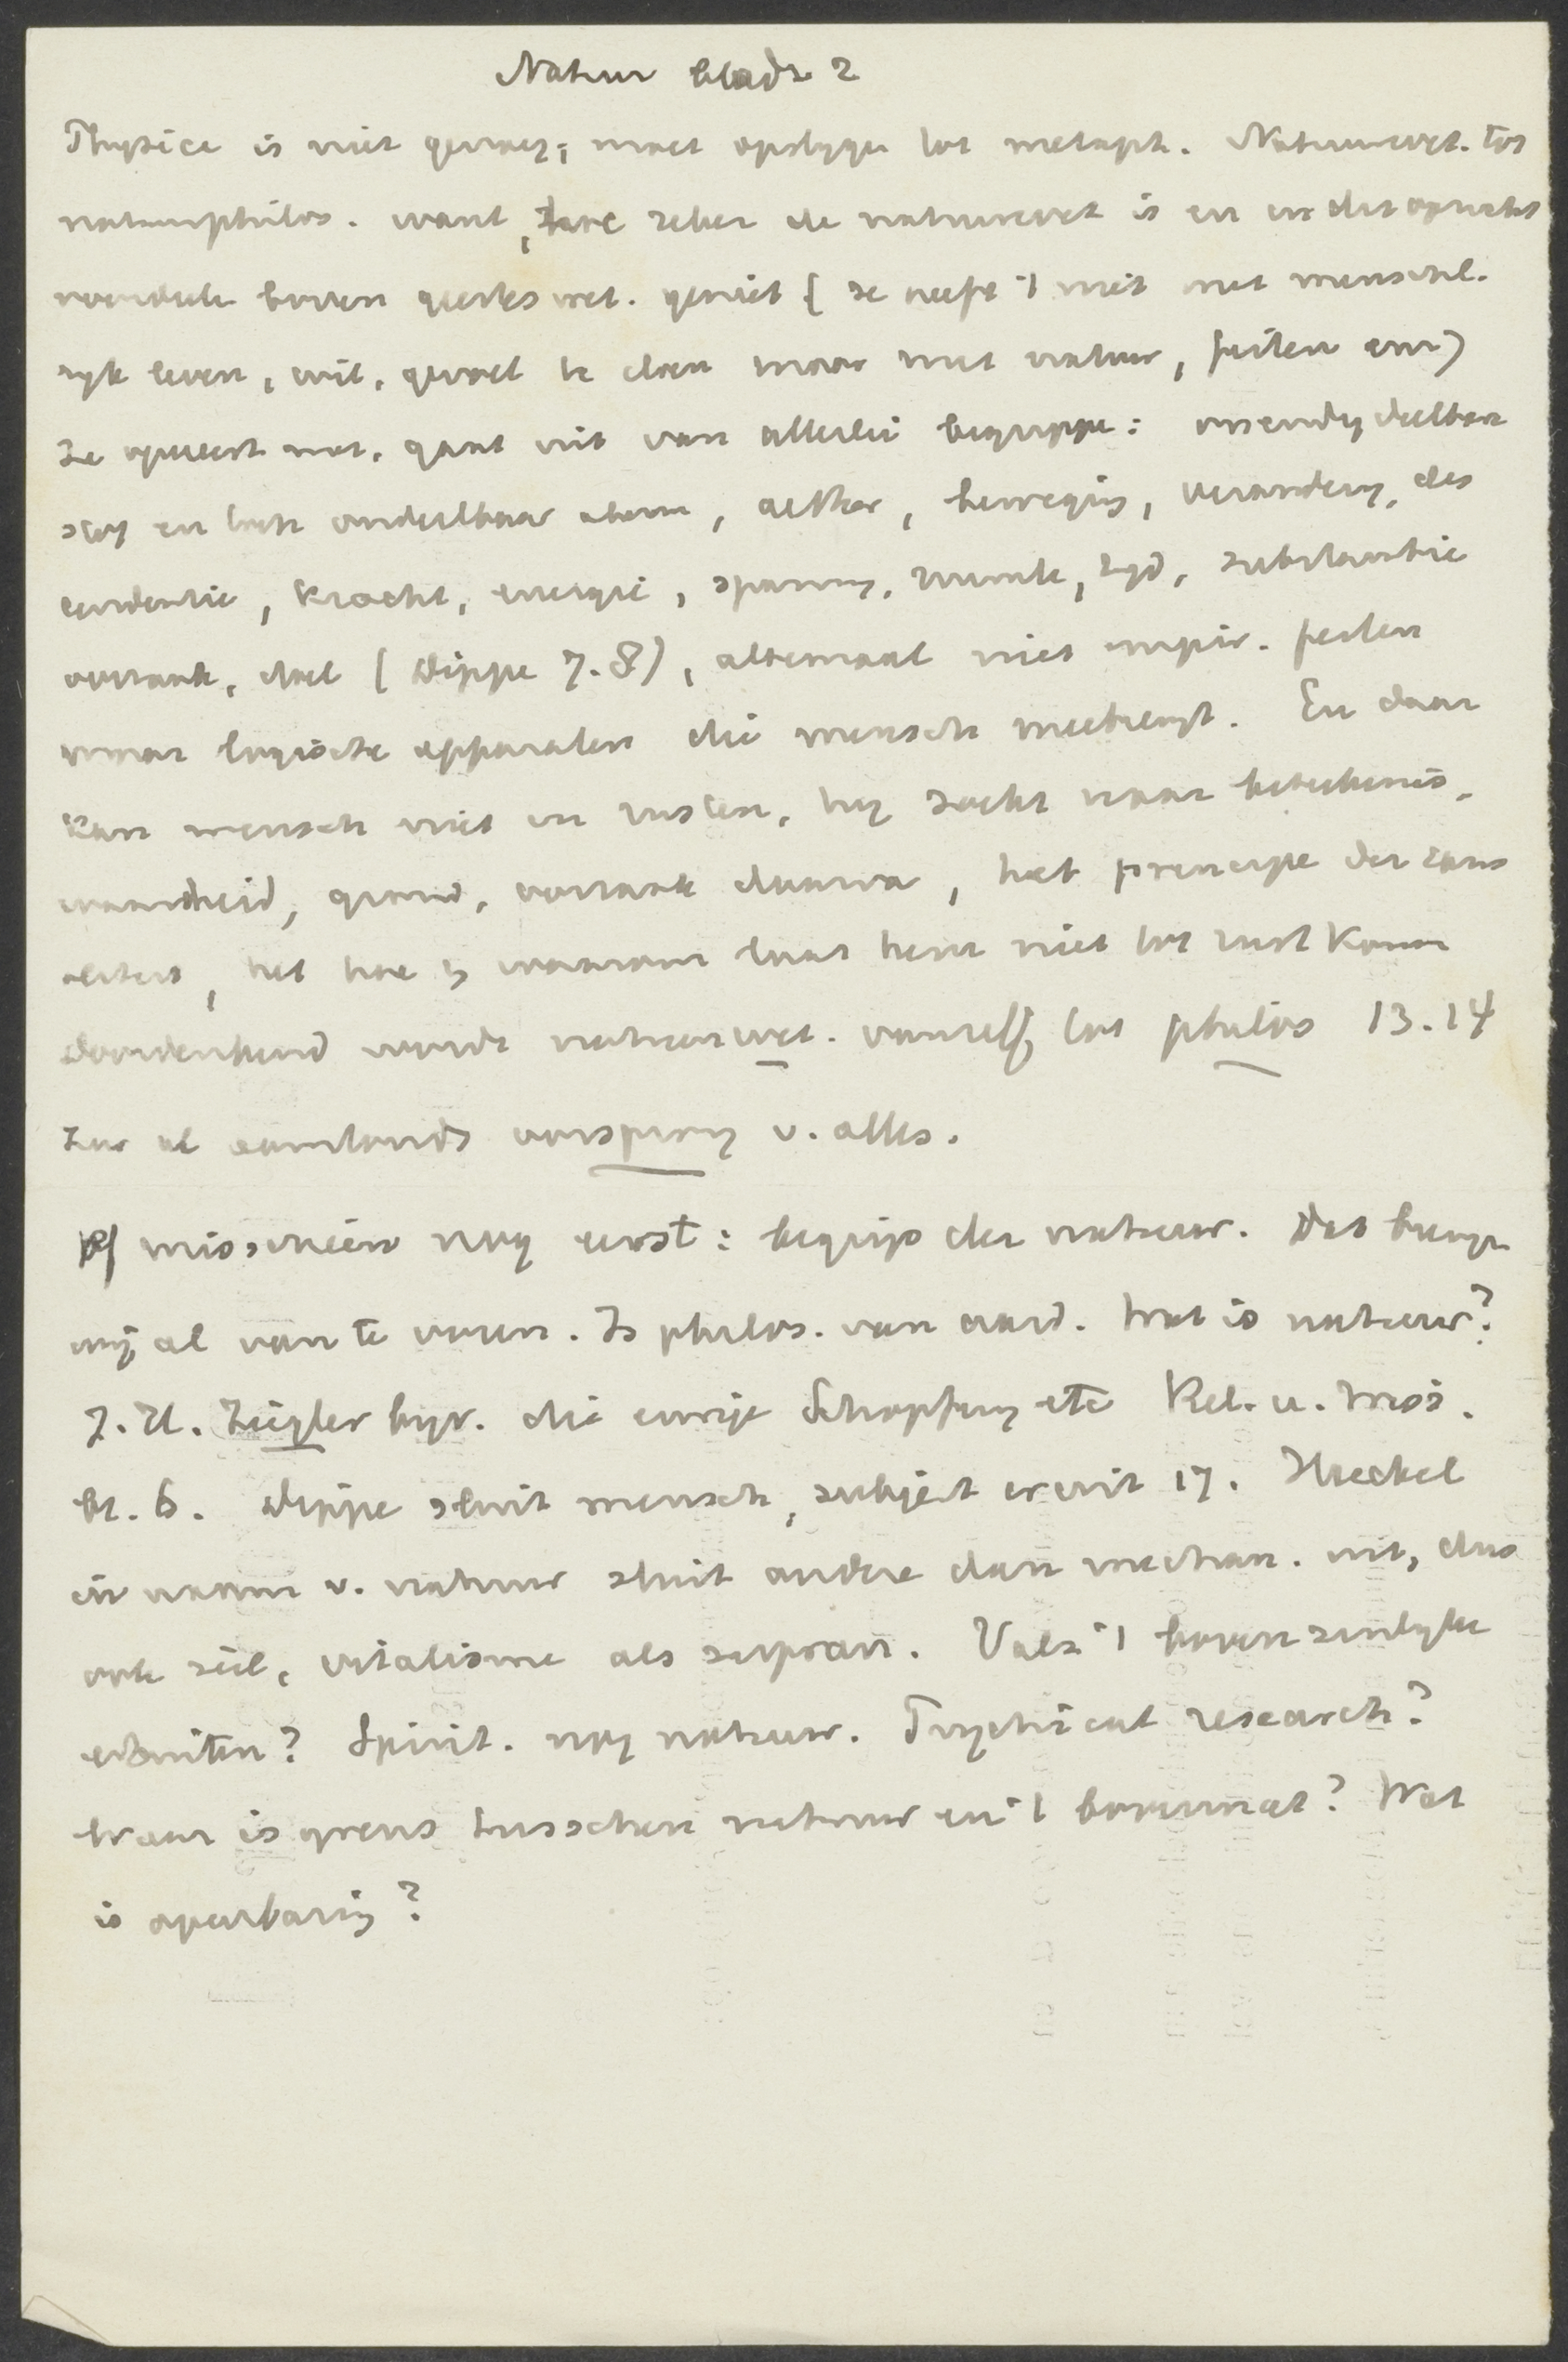 Natuur bladz 2
Physica is niet genoeg; moet opstygen tot metaph. Natuurwet. tot
natuurphilos. want, hoe zeker de natuurwet is en in dit opzicht
voordeel boven geestes wet. geniet (ze heeft 't niet met menschel.
ryk leven, wil, gevoel te doen maar met natuur, feiten enz)
ze opereert met, gaat uit van allerlei begrippen: oneindig deelbare
stof en toch ondeelbaar atoom, aether, beweging, verandering, des
cendentie, kracht, energie, spanning, ruimte, tyd, substantie
oorzaak, doel (Dippe 7.8), altemaal niet empir. feiten
maar logische apparaten die mensch meebrengt. En daar
kan mensch niet in rusten, hy zoekt naar beteekenis,
waarheid, grond, oorzaak daarva, het principe der caus
aliteit, het hoe & waarom laat hem niet tot rust komen
doordenkend wordt natuurwet. vanzelf tot philos 13.14
Zoo al aanstonds oorsprong v. alles.
Of misschien nog eerst: begrip der natuur. Dat brengen
wij al van te voren. Is philos. van aard. Wat is natuur?
J. H. Ziegler byv. die ewige Schöpfung etc Rel. u. Wiss.
bl. 6. Dippe sluit mensch, subject eruit 17. Haeckel
in naam v. natuur sluit andere dan mechan. uit, dus
ook ziel, vitalisme als supran. Valt 't bovenzinlyke
erbuiten? Spirit. nog natuur. Psychical research?
Waar is grens tusschen natuur en 't bovennat? Wat
is openbaring?